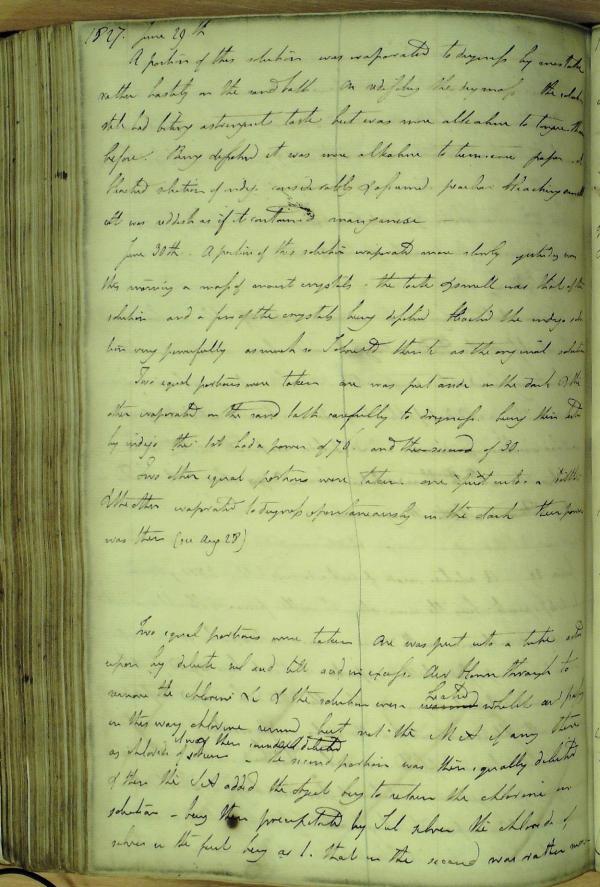 1827. June 29th
A portion of this solution was evaporated to dryness by mistake
rather hastily on the sand bath. On redissolving the dry mass the solution
still had bitter astringent taste but was more alkaline to tongue than
before. Being dissolved it was more alkaline to turmeric paper
bleached solution of indigo considerably & assumed peculiar bleaching smell
was reddish as if it contained manganese
June 30th. A portion of this solution evaporated more slowly yesterday was
this morning a mass of crystals. the taste & smell was that of the
solution and a few of the crystals being dissolved bleached the indigo solu
tion very powerfully as much so I should think as the original solution
Two equal portions were taken one was put aside in the dark & the
other evaporated on the sand bath carefully to dryness. being then tested
by indigo the 1st had a power of 70. and the second of 30.
Two other equal portions were taken. one put into a bottle
& the other evaporated to dryness spontaneously in the dark their power
was then (see Aug 28)
Two equal portions were taken One was put into a tube acted
upon by dilute sul acid till acid in excess. Air blown through to
remove the chlorine &c & the solution even heated whilst air passing
in this way chlorine removed but not the M A if any there
as chloride of sodium
the second portion was then equally diluted
& then the S A added the object being to retain the chlorine in
solution - being then precipitated by Sul silver the chloride of
silver in the first being as 1. that in the second was rather more